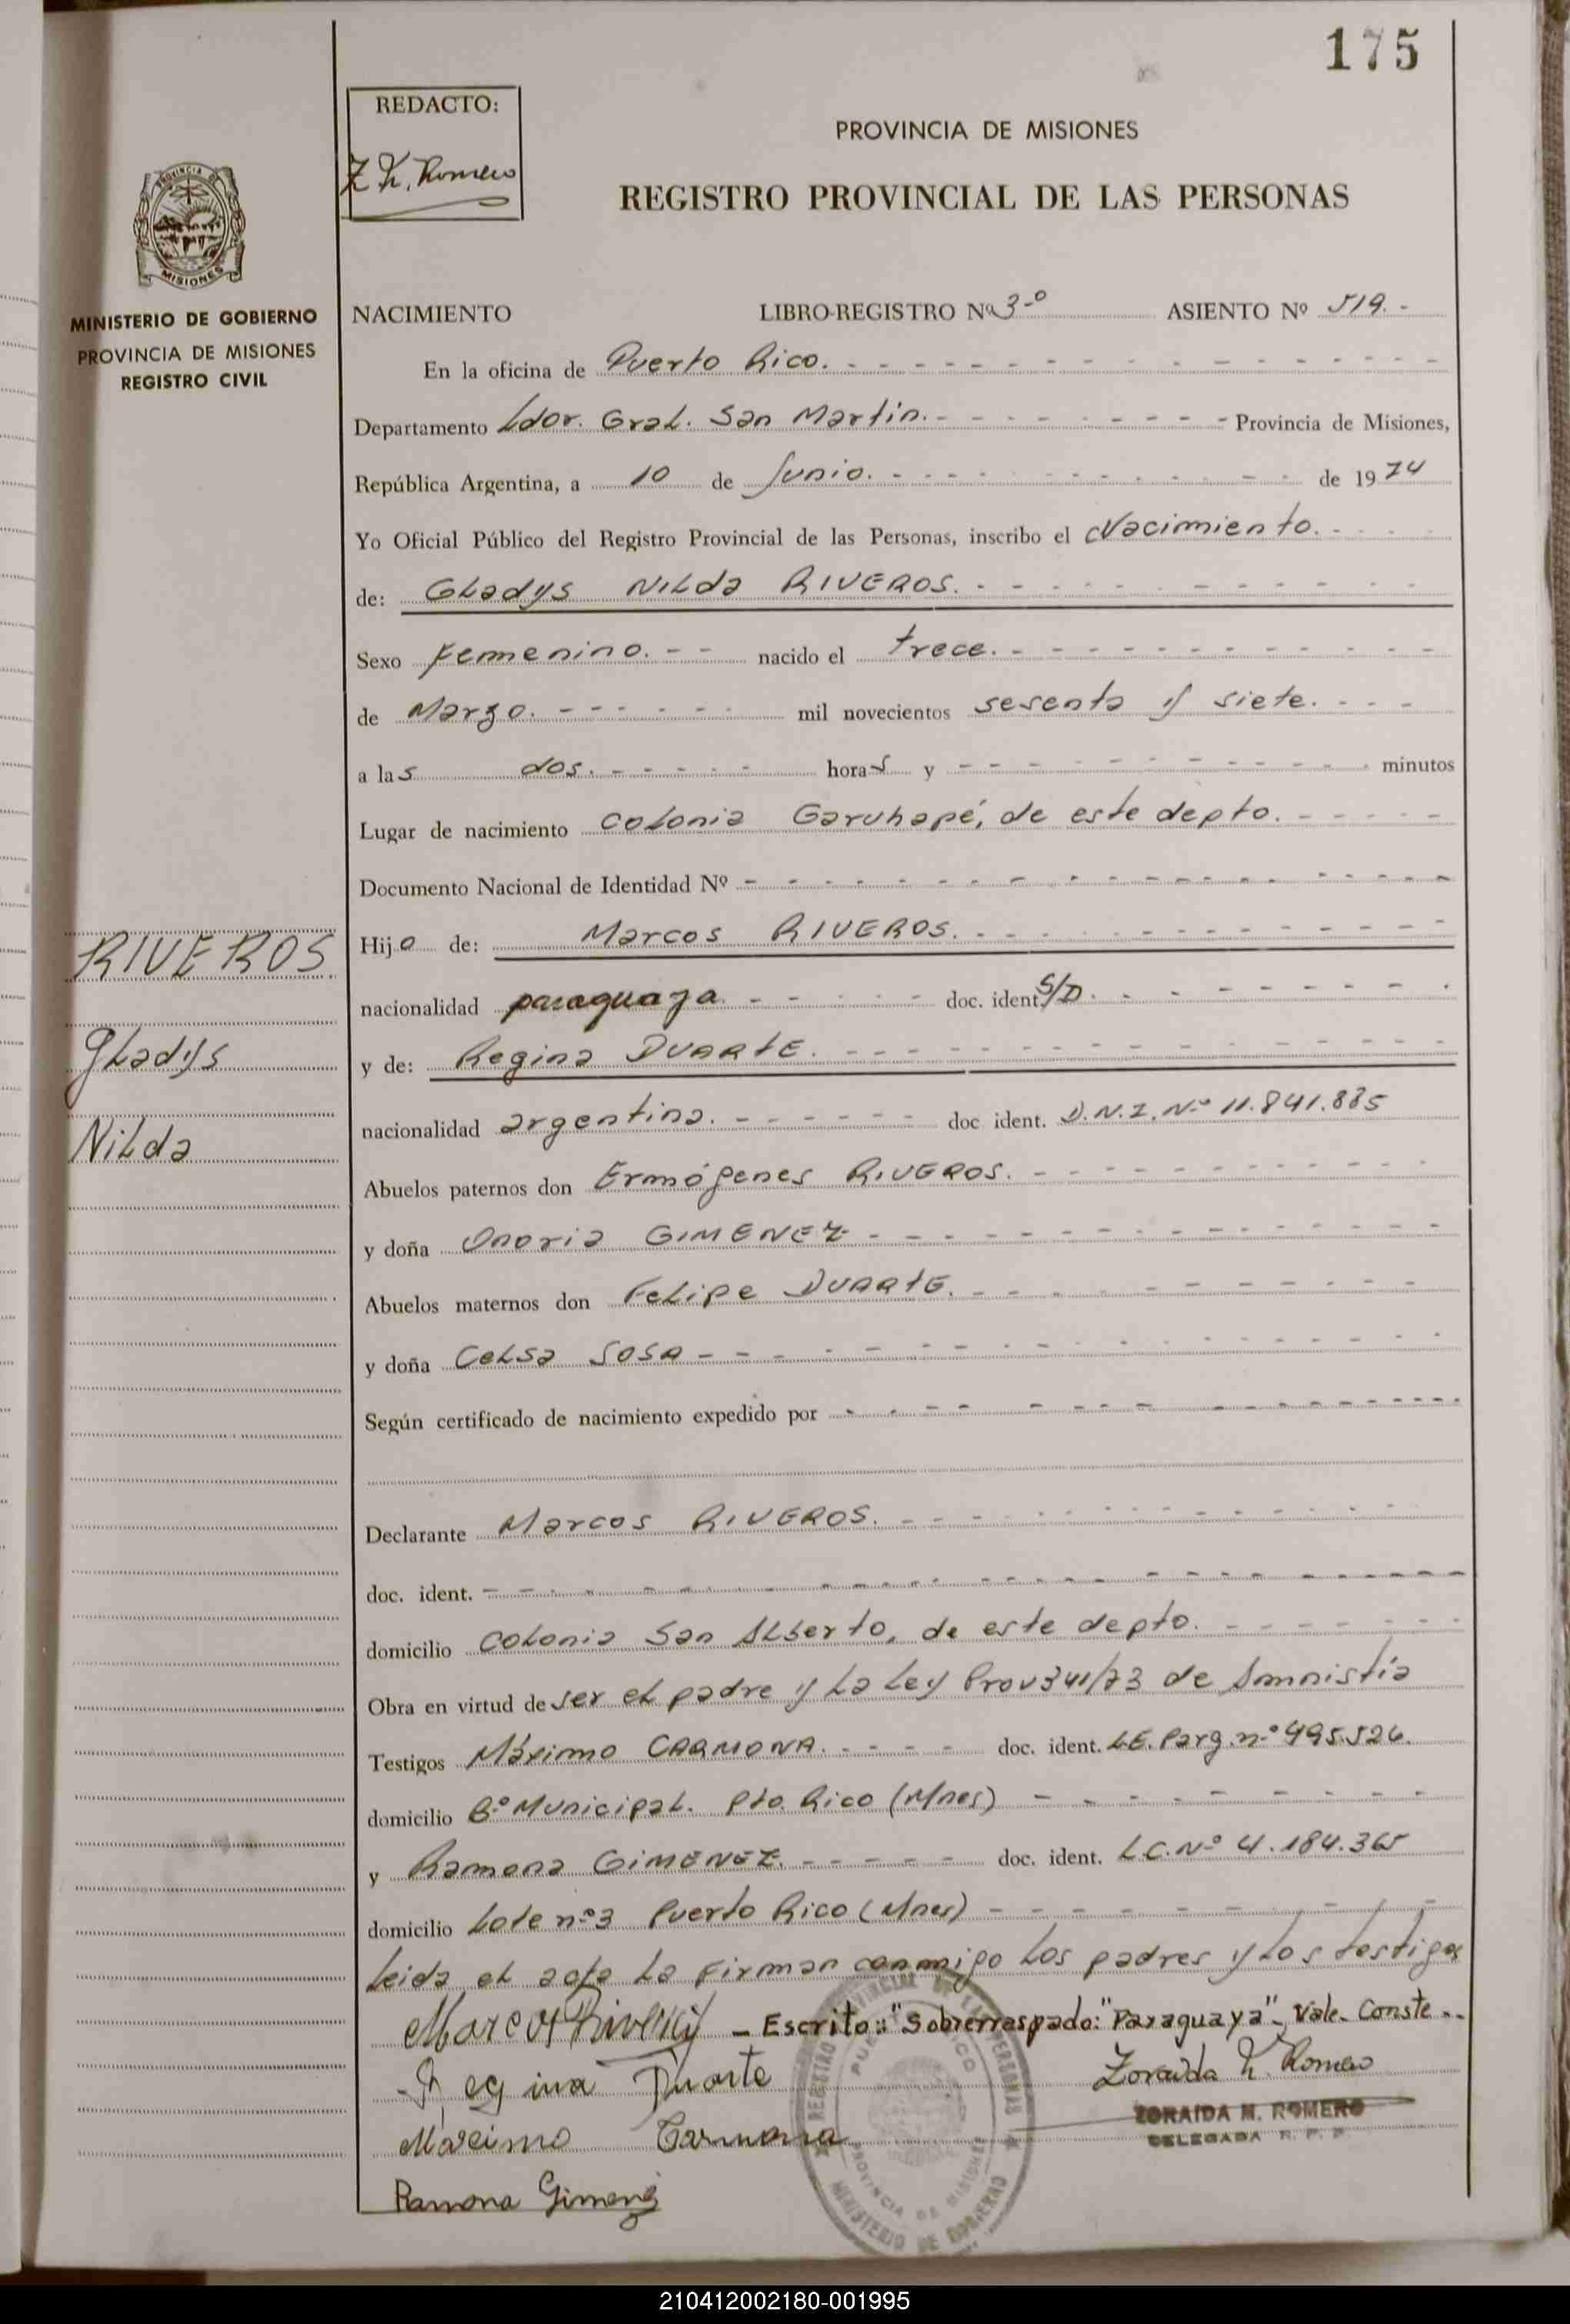 175
REDACTO:
Z M. Romero
PROVINCIA DE MISIONES
REGISTRO PROVINCIAL DE LAS PERSONAS
PROVINCIA DE
MISIONES
MINISTERIO DE GOBIERNO
PROVINCIA DE MISIONES
REGISTRO CIVIL
NACIMIENTO LIBRO-REGISTRO Nº 3-º ASIENTO Nº 519.-
En la oficina de Puerto Rico.
Departamento Ldor. Gral. San Martin. Provincia de Misiones,
República Argentina, a 10 de Junio. de 1974
Yo Oficial Público del Registro Provincial de las Personas, inscribo el Nacimiento.
de: Gladys Nilda RIVEROS.
Sexo Femenino. nacido el trece.
de Marzo. mil novecientos sesenta y siete.
a las dos. horas y minutos
Lugar de nacimiento Colonia Garuhapé, de este depto.
Documento Nacional de Identidad Nº
RIVEROS
Gladys
Nilda
Hijo de: Marcos RIVEROS.
nacionalidad paraguaya doc. ident. S/D.
y de: Regina DUARTE.
nacionalidad argentina. doc ident. D.N.I. Nº 11.841.885
Abuelos paternos don Ermógenes RIVEROS.
y doña Onoria GIMENEZ
Abuelos maternos don Felipe DUARTE.
y doña Celsa SOSA
Según certificado de nacimiento expedido por
Declarante Marcos RIVEROS.
doc. ident.
domicilio Colonia San Alberto, de este depto.
Obra en virtud de ser el padre y la Ley Prov 341/73 de Amnistía
Testigos Máximo CARMONA. doc. ident. L.E. Parg. nº 495.526.
domicilio Bº Municipal. Pto. Rico (Mnes)
y Ramona GIMENEZ. doc. ident. L.C. Nº 4.184.365
domicilio Lote nº3 Puerto Rico (Mnes)
Leida el acta la Firman conmigo los padres y los testigos
Marcos Riveros - Escrito: "Sobrerraspado: "Paraguaya"- Vale. Conste..
Regina Duarte
Zoraida M. Romero
ZORAIDA M. ROMERO
DELEGADA R. P. P.
Máximo Carmona
Ramona Gimenez
REGISTRO PROVINCIAL DE LAS PERSONAS
PUERTO RICO
PROVINCIA DE MISIONES
MINISTERIO DE GOBIERNO
210412002180-001995